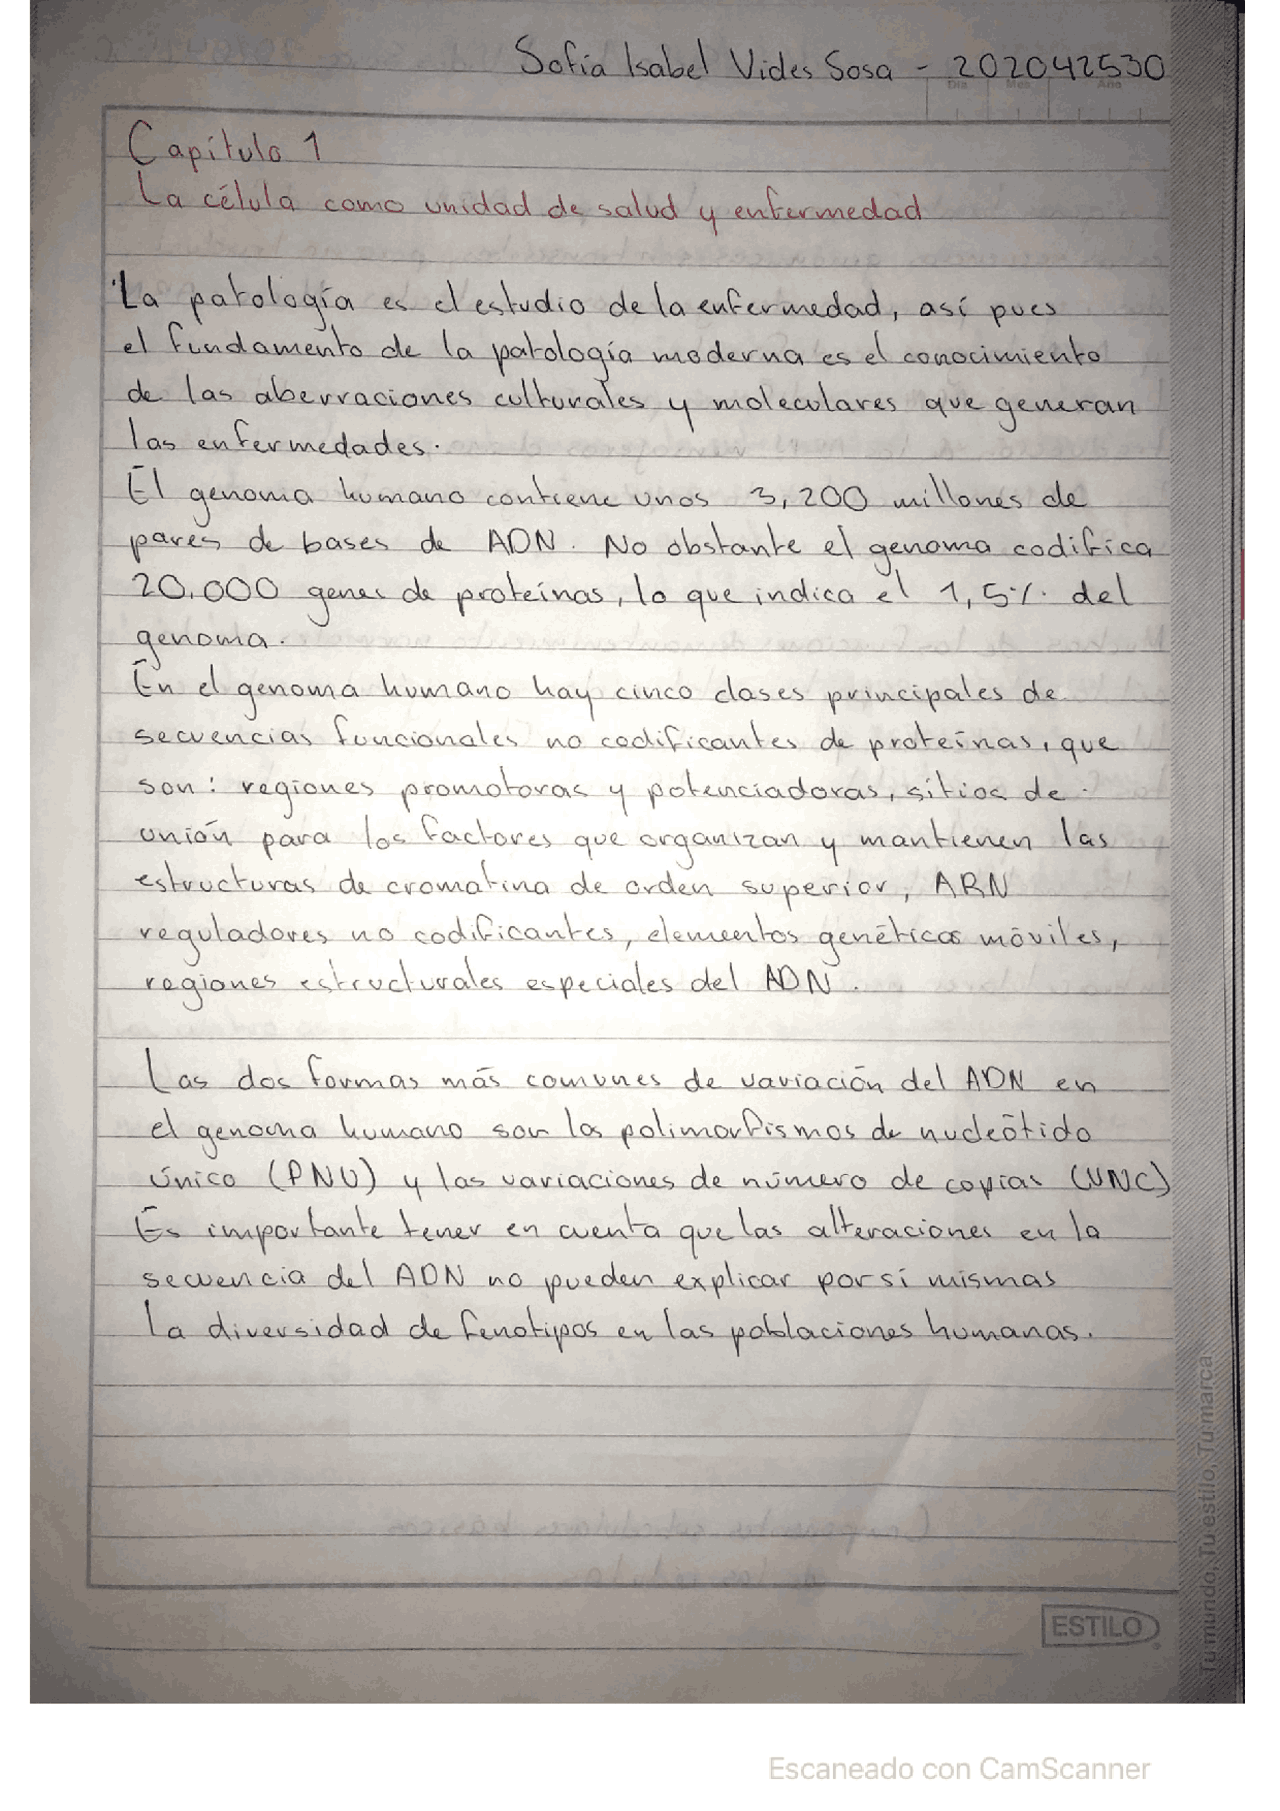 Sofía Isabel Vides Sosa - 202042530
Día Mes Año
Capítulo 1
La célula como unidad de salud y enfermedad
La patología es el estudio de la enfermedad, así pues
el fundamento de la patología moderna es el conocimiento
de las aberraciones culturales y moleculares que generan
las enfermedades.
El genoma humano contiene unos 3,200 millones de
pares de bases de ADN. No obstante el genoma codifica
20.000 genes de proteínas, lo que indica el 1,5%. del
genoma.
En el genoma humano hay cinco clases principales de
secuencias funcionales no codificantes de proteínas, que
son: regiones promotoras y potenciadoras, sitios de
unión para los factores que organizan y mantienen las
estructuras de cromatina de orden superior, ARN
reguladores no codificantes, elementos genéticos móviles,
regiones estructurales especiales del ADN.
Las dos formas más comunes de variación del ADN en
el genoma humano son los polimorfismos de nucleótido
único (PNU) y las variaciones de número de copias (VNC)
Es importante tener en cuenta que las alteraciones en la
secuencia del ADN no pueden explicar por sí mismas
la diversidad de fenotipos en las poblaciones humanas.
ESTILO
Tu mundo, Tu estilo, Tu marca
Escaneado con CamScanner